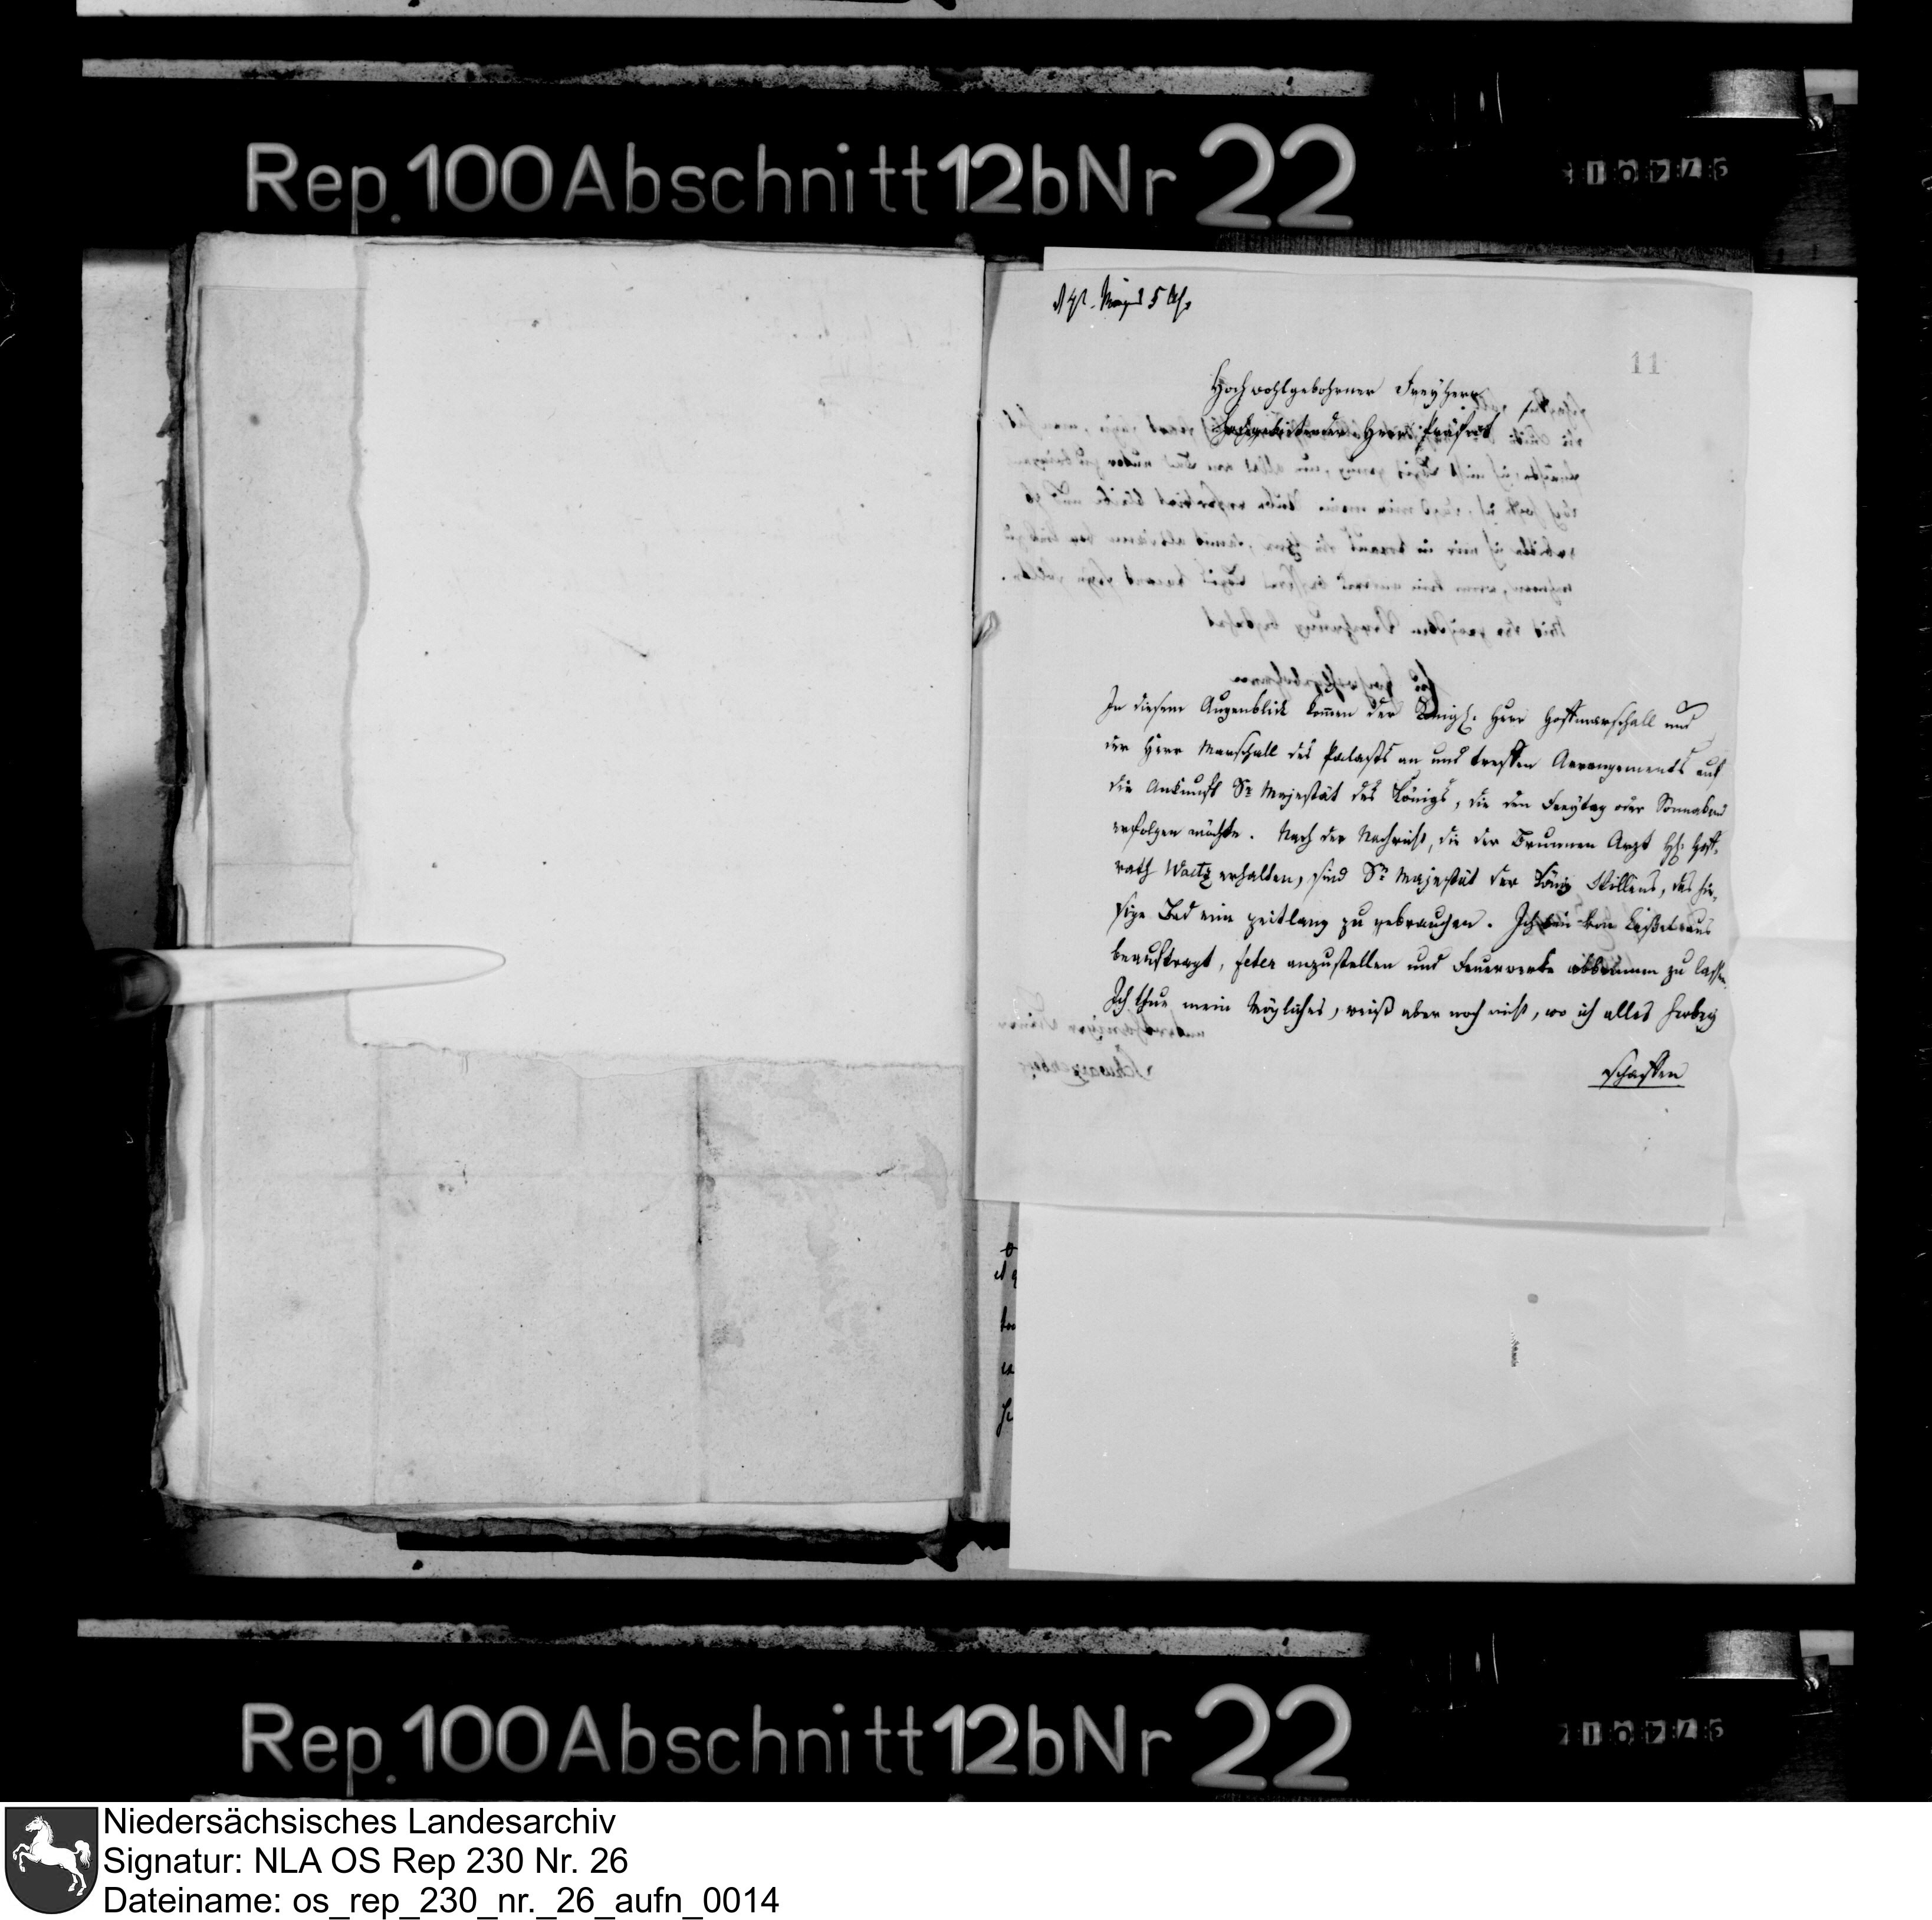 Rep. 100 Abschnitt 12b Nr 22
11
Hochwohlgebohrner Freyherr
Hochgebietender Herr Präfect
In diesem Augenblick komen der Königl. Herr Hoffmarschall und
der Herr Marschall des Palasts an und treffen Arrangements auf
die Ankunft Sr Majestät des Königs, die den Freytag oder Sonnabend
erfolgen möchte. Nach der Nachricht, die der Brunnen Arzt H. Hoff-
rath Waitz erhalten, sind Sr Majestät der König Willens, das hie-
sige Bad eine zeitlang zu gebrauchen. Ich bin von Caßel aus
beauftragt, feten anzustellen und Feuerwerke abbrennen zu lassen.
Ich thue mein Mögliches, weiß aber noch nicht, wo ich alles herbey
schaffen
Rep. 100 Abschnitt 12b Nr 22
Niedersächsisches Landesarchiv
Signatur: NLA OS Rep 230 Nr. 26
Dateiname: os_rep_230_nr._26_aufn_0014